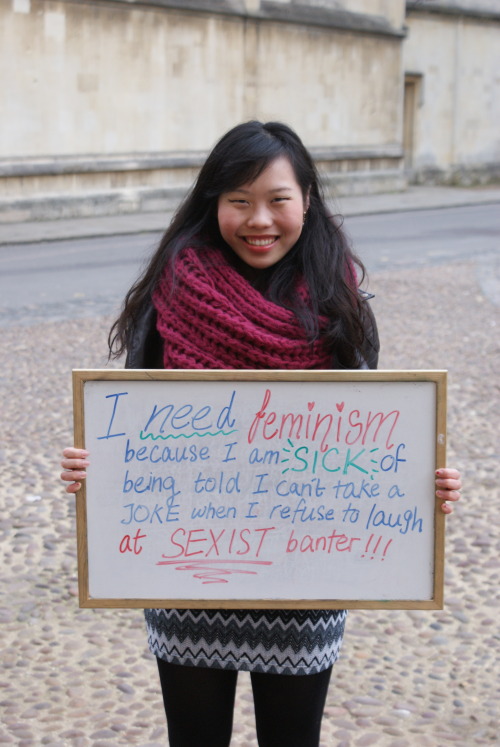 I need feminism
because I am SICK of
being told I can't take a
JOKE when I refuse to laugh
at SEXIST banter!!!